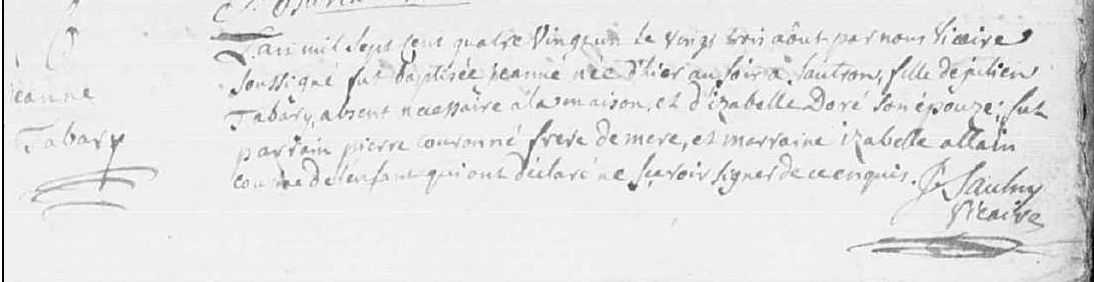 jeanne
Tabary
L'an mil sept cent quatre vingt un le vingt trois août par nous vicaire
soussigné fut baptisée jeanne née d'hier au soir à sautron, fille de julien
Tabary, absent necessaire à la maison, et d'izabelle Doré son épouze; fut
parrain pierre couronné frere de mere, et marraine izabelle allain
cousine de l'enfant qui ont déclaré ne sçavoir signer de ce enquis.
vicaire